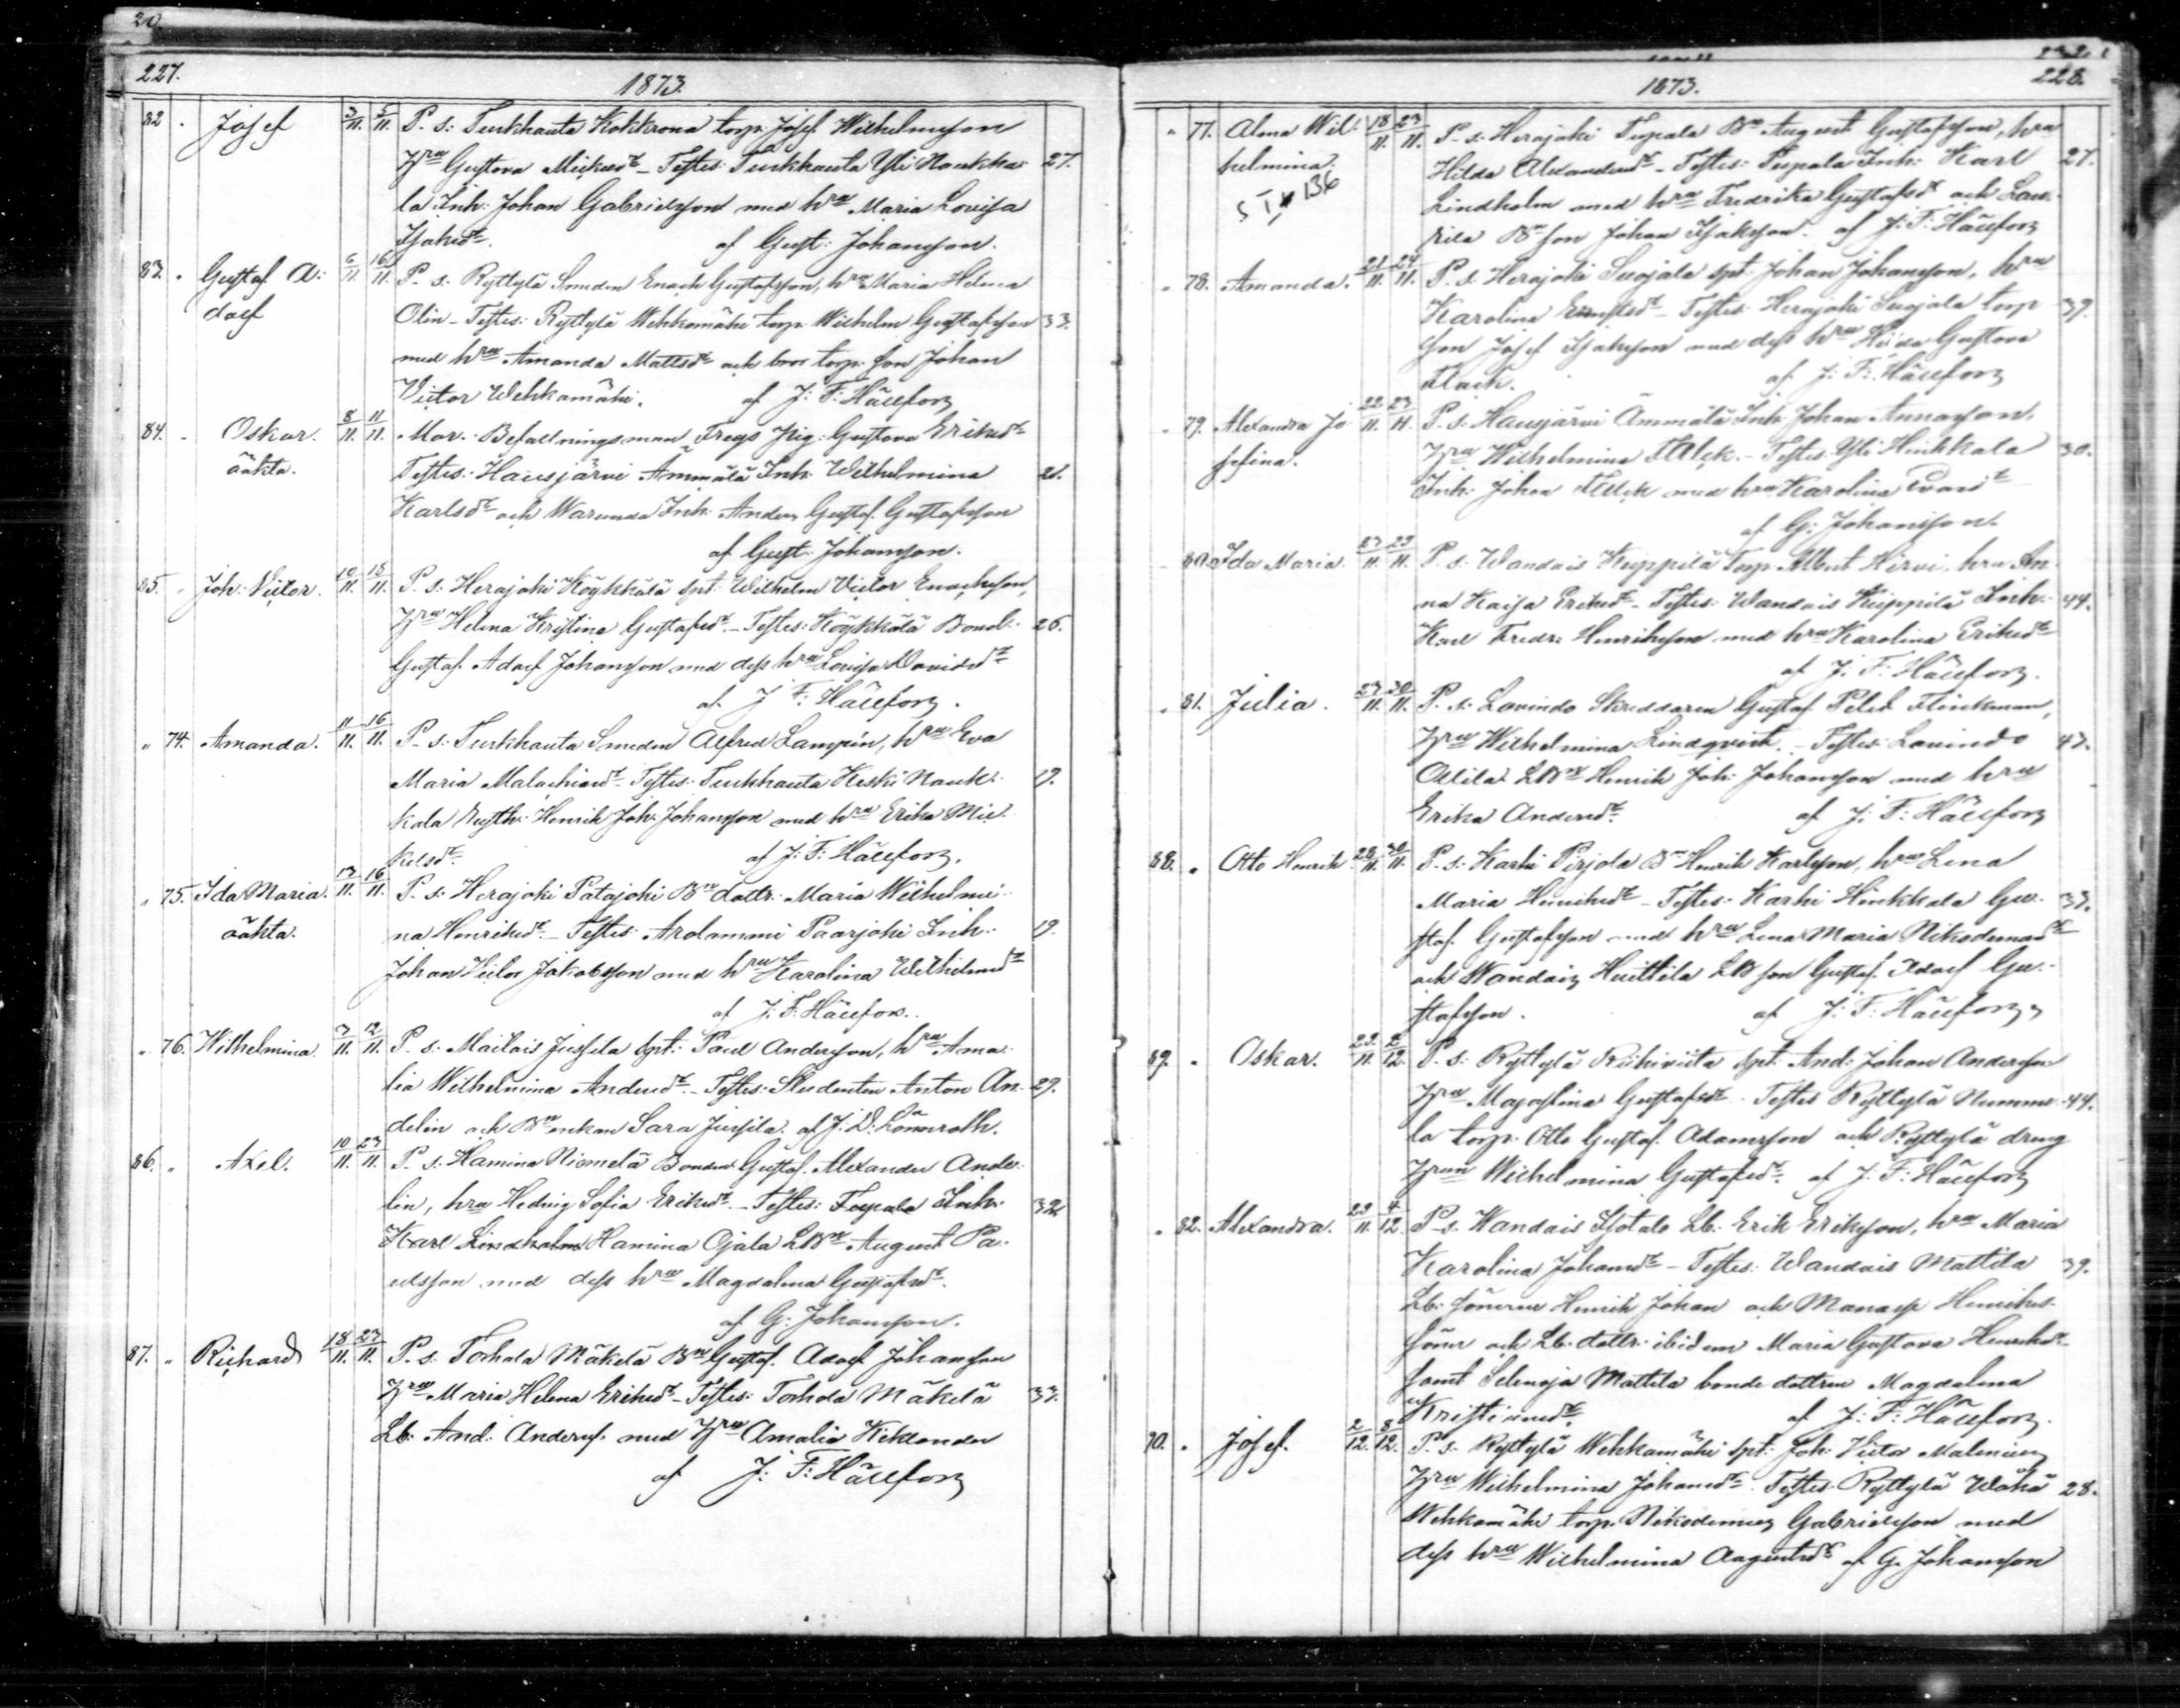 20.
227.
1873.
82. Josef 3/11. 5/11. P. s: Turkhauta Kokkrona torp. Josef Wilhelmsson
Hru Gustava Mickelsdr - Testes: Turkhauta Yli Naukka- 27.
la Inh: Johan Gabrielsson med hru Maria Lovisa
Isaksdr. af Gust: Johansson.
83. Gustaf A- 6/11. 16/11. P. s: Ryttylä Smeden Enoch Gustafsson, hru Maria Helena
dolf Olin - Testes: Ryttylä Wehkamäki torp. Wilhelm Gustafsson 33.
med hru Amanda Mattsdr och bror torp. son Johan
Victor Wehkamäki. af J: F: Hällfors
84. Oskar. 8/11. 11/11. Mor: Befallningsman Fregs Pig: Gustava Eriksdr
oäkta. Testes: Hausjärvi Ämmälä Inh: Wilhelmina 21.
Karlsdr och Warunda Inh: Anders Gustaf Gustafsson
af Gust: Johansson.
85. Joh: Victor. 10/11. 15/11. P. s: Herajoki Köykkälä spt: Wilhelm Victor Enochsson,
Hru Helena Kristina Gustafsdr. - Testes: Köykkälä Bond: 26.
Gustaf Adolf Johansson med dess hru Lovisa Davidsdr
af J: F: Hällfors.
74. Amanda. 11/11. 16/11. P. s: Turkhauta Smeden Alfred Lampén, hru Eva
Maria Malachiasdr - Testes: Turkhauta Keski Nauk- 19.
kala Rusth: Henrik Joh: Johansson med hru Erika Mic-
kelsdr. af J: F: Hällfors.
75. Ida Maria. 13/11. 16/11. P. s: Herajoki Patajoki Bn dottr: Maria Wilhelmi-
oäkta. na Henriksdr. - Testes: Arolammi Paarjoki Inh: 19.
Johan Victor Jakobsson med hru Karolina Wilhelmsdr
af J: F: Hällfors.
76. Wilhelmina. 3/11. 12/11. P. s: Mailais Jussila spt: Paul Andersson, hru Ama-
lia Wilhelmina Andersdr. - Testes: Studenten Anton An- 29.
delin och Bn enkan Sara Jussila. af J: D: Lönnroth.
86. Axel. 10/11. 23/11. P. s: Hamina Niemelä Bonden Gustaf Alexander Ande-
lin, hru Hedvig Sofia Eriksdr. - Testes: Topala Inh: 32.
Karl Lindholm Hamina Ojala LBn August Pa-
ulsson med dess hru Magdalena Gustafsdr.
af G: Johansson.
87. Richard 18/11. 23/11. P. s. Torhola Mäkelä Bn Gustaf Adolf Johansson
Hru Maria Helena Eriksdr - Testes: Torhola Mäkelä 33.
Lb: And: Anders. med Hru Amalia Wiklander
af J: F: Hällfors
1873.
228.
77. Alma Wil- 18/11. 23/11. P. s: Herajoki Topala Bn August Gustafsson, hru
helmina. Hilda Alexandersdr - Testes: Topala Inh: Karl 27.
Lindholm med hru Fredrika Gustafsdr och
Bn son Johan Isaksson. af J: F: Hällfors
78. Amanda. 21/11. 24/11. P. s: Herajoki Suojala spt: Johan Johansson, hru
Karolina Ernstsdr - Testes: Herajoki Suojala torp. 39.
son Josef Isaksson med dess hru Hilda Gustava
Flack. af J: F: Hällfors
79. Alexandra Jo- 22/11. 23/11. P. s: Hausjärvi Ämmälä Inh: Johan
sefina. Hru Wilhelmina - Testes: Yli Hinkkala 30.
Inh: Johan med hru Karolina
af G: Johansson.
80. Ida Maria. 23/11. 29/11. P. s: Wandais Kuppilä Torp. Albert Hirvi, hru An-
na Kaisa Eriksdr - Testes: Wandais Kuppilä Inh: 44.
Karl Fredr: Henriksson med hru Karolina Eriksdr
af J: F: Hällfors.
81. Julia. 27/11. 30/11. P. s: Lavindo Skreddaren Gustaf Flinkman,
Hru Wilhelmina Lindqvist. - Testes: Lavindo 43.
LBn Henrik Joh: Johansson med hru
Erika Andersdr. af J: F: Hällfors
88. Otto Henrik 28/11. 30/11. P. s: Karhi Pirjola Bn Henrik Karlsson, hru Lena
Maria Henriksdr - Testes: Karhi Hinkkala Gu- 37.
staf Gustafsson med hru Lena Maria Nikodemusdr
och Wandais Huittila LB son Gustaf Adolf Gu-
stafsson. af J: F: Hällfors
89. Oskar. 29/11. 2/12. P. s: Ryttylä Riihiviita spt: And: Johan Andersson
Hru Majastina Gustafsdr - Testes Ryttylä Numme- 44.
la torp. Otto Gustaf Adamsson och Ryttylä dreng
Hrun Wilhelmina Gustafsdr. af J: F: Hällfors
82. Alexandra. 29/11. 4/12. P. s. Wandais Isotalo Lb: Erik Eriksson, hru Maria
Karolina Johansdr - Testes: Wandais Mattila 39.
Lb: sönerne Henrik Johan och Manasse Henriks-
söner och Lb: dottr. ibidem Maria Gustava Henriksdr
samt Selenoja Mattila bonde dottren Magdalena
Kristiansdr. af J: F: Hällfors.
90. Josef. 2/12. 8/12. P. s: Ryttylä Wehkamäki spt: Joh: Victor Malenius
Hru Wilhelmina Johansdr. Testes Ryttylä Wähä 28.
Wehkamäki torp. Nikodemus Gabrielsson med
dess hru Wilhelmina Augustsdr af G. Johansson